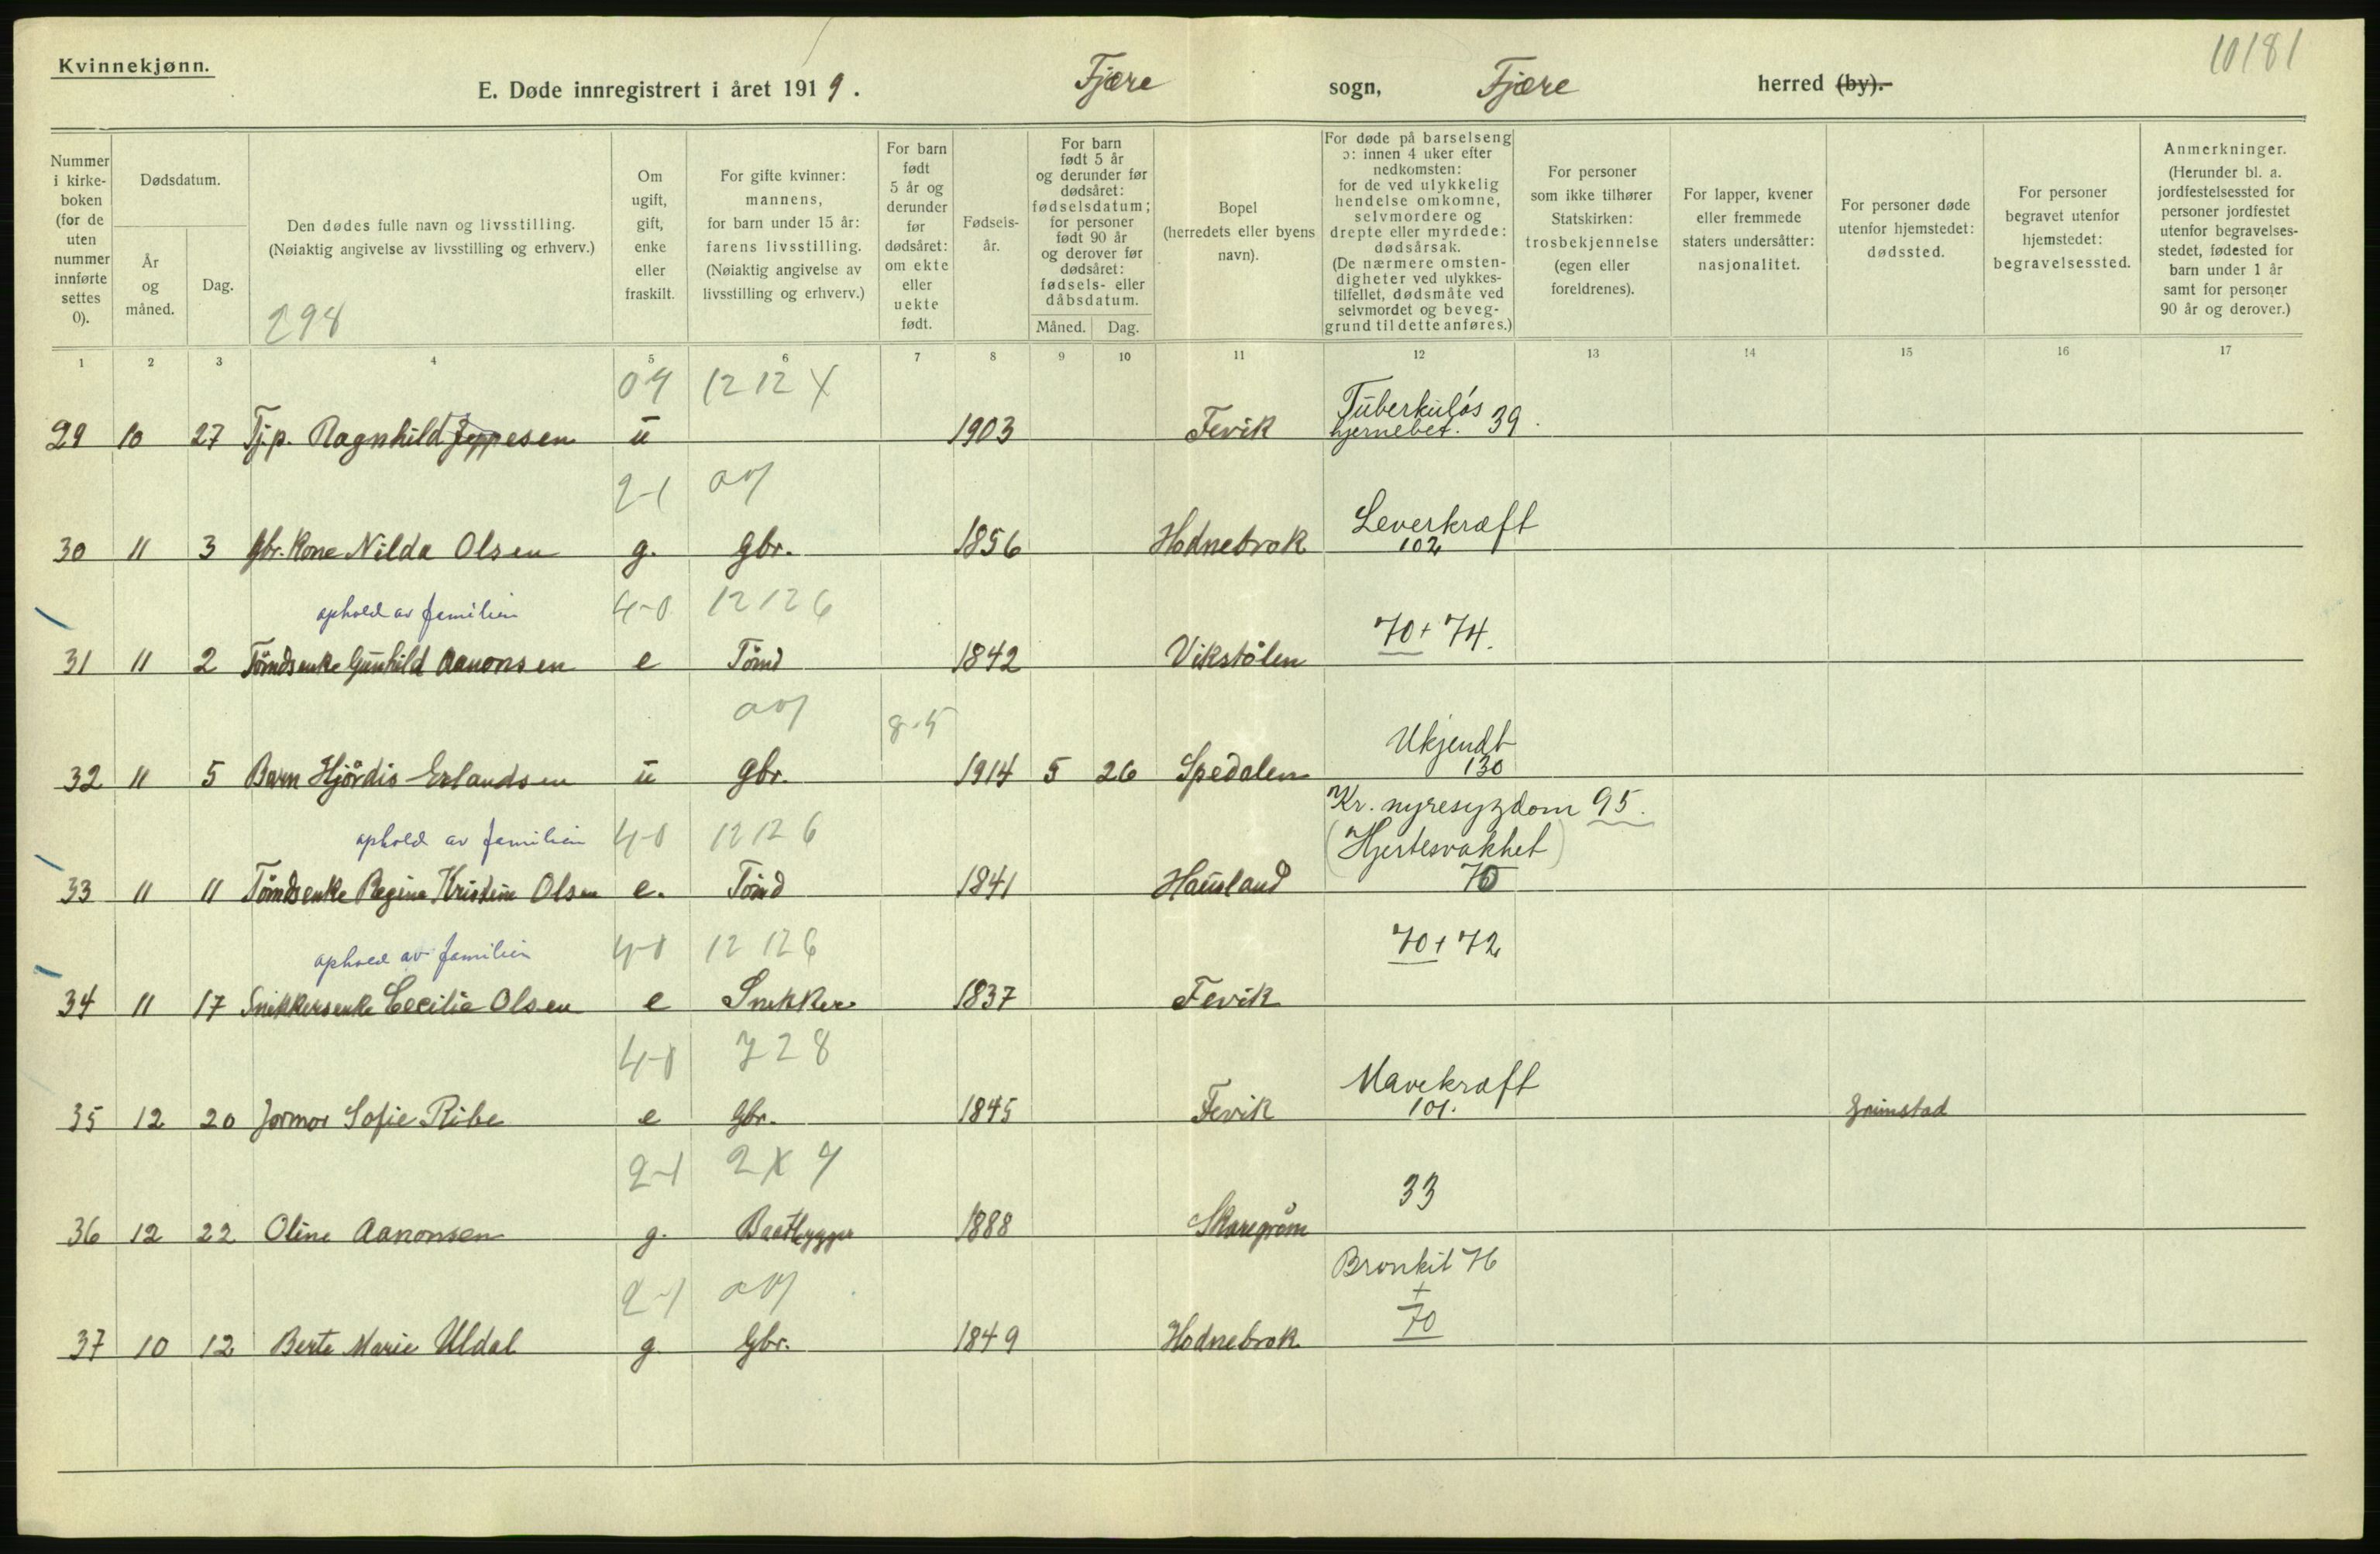 10181
Kvinnekjønn.
E. Døde innregistrert i året 1919. Fjære sogn, Fjære herred (by).
Nummer i kirkeboken (for de uten nummer innførte settes 0).
Dødsdatum.
År og måned.
Dag.
Den dødes fulle navn og livsstilling. (Nøiaktig angivelse av livsstilling og erhverv.)
298
Om ugift, gift, enke eller fraskilt.
For gifte kvinner: mannens, for barn under 15 år: farens livsstilling. (Nøiaktig angivelse av livsstilling og erhverv.)
For barn født 5 år og derunder før dødsåret: om ekte eller uekte født.
Fødselsår.
For barn født 5 år og derunder før dødsåret: fødselsdatum; for personer født 90 år og derover før dødsåret: fødsels- eller dåbsdatum.
Måned. Dag.
Bopel (herredets eller byens navn).
For døde på barselseng ɔ: innen 4 uker efter nedkomsten: for de ved ulykkelig hendelse omkomne, selvmordere og drepte eller myrdede: dødsårsak. (De nærmere omstendigheter ved ulykkestilfellet, dødsmåte ved selvmordet og beveggrund til dette anføres.)
For personer som ikke tilhører Statskirken: trosbekjennelse (egen eller foreldrenes).
For lapper, kvener eller fremmede staters undersåtter: nasjonalitet.
For personer døde utenfor hjemstedet: dødssted.
For personer begravet utenfor hjemstedet: begravelsessted.
Anmerkninger. (Herunder bl. a. jordfestelsessted for personer jordfestet utenfor begravelsesstedet, fødested for barn under 1 år samt for personer 90 år og derover.)
1 2 3 4 5 6 7 8 9 10 11 12 13 14 15 16 17
12 12 X Tuberkuløs
29 10 27 Tjp. Ragnhild Jeppesen u 1903 Fevik hjernebet. 39.
2-1 Leverkræft
30 11 3 Gbr. Kone Nilda Olsen g. gbr. 1856 Hodnebrok 102
ophold av familien 4-0 12 12 6 70 + 74.
31 11 2 Tømdsenke Gunhild Aanonsen e Tømd 1842 Vikstølen
8-5 Ukjendt
32 11 5 Barn Hjørdis Erlandsen u gbr. 1914 5 26 Spedalen 130
ophold av familien 4-0 12 12 6 Kr. nyresygdom 95. (Hjertesvakhet)
33 11 11 Tømdsenke Regine Kristine Olsen e. Tømd 1841 Hausland 70
ophold av familien 4-0 12 12 6 70 + 72
34 11 17 Snikkersenke Cecilie Olsen e Snekker 1837 Fevik
4-0 728 Mavekræft
35 12 20 Jormor Sofie Ribe e Gbr. 1845 Fevik 101. Grimstad
2-1 2X 4 33
36 12 22 Oline Aanonsen g. Baatbygger 1888 Skaregrøm
2-1 Bronkit 76 +
37 10 12 Berte Marie Uldal g Gbr. 1849 Hodnebrok 70